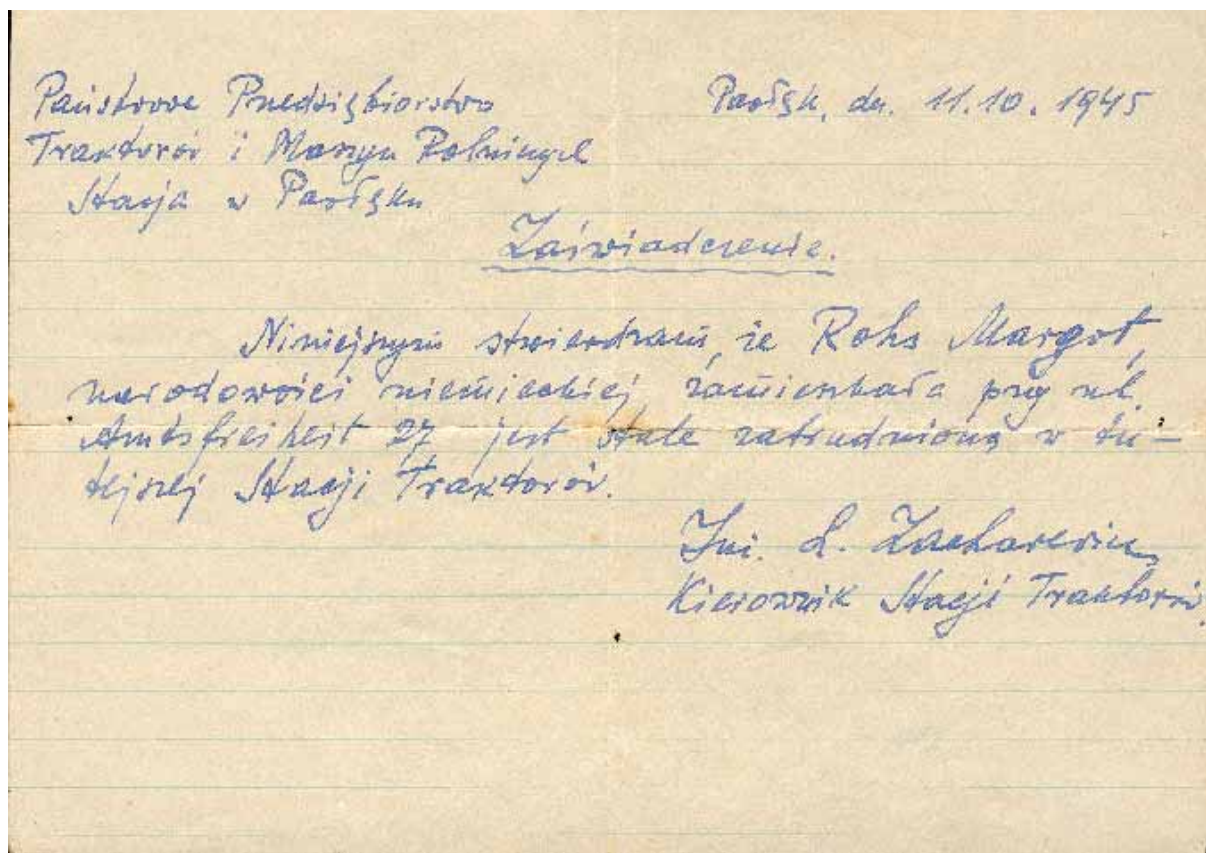 Państwowe Przedsiębiorstwo
Traktorów i Maszyn Rolniczych
Stacja w Pasłęku
Pasłęk, dn. 11.10.1945
Zaświadczenie.
Niniejszym stwierdzam, że Rohs Margot,
narodowości niemieckiej, zamieszkała przy ul.
Amtsfreiheit 27 jest stale zatrudniona w tu-
tejszej Stacji Traktorów.
Inż. L. Zacharewicz
Kierownik Stacji Traktorów.